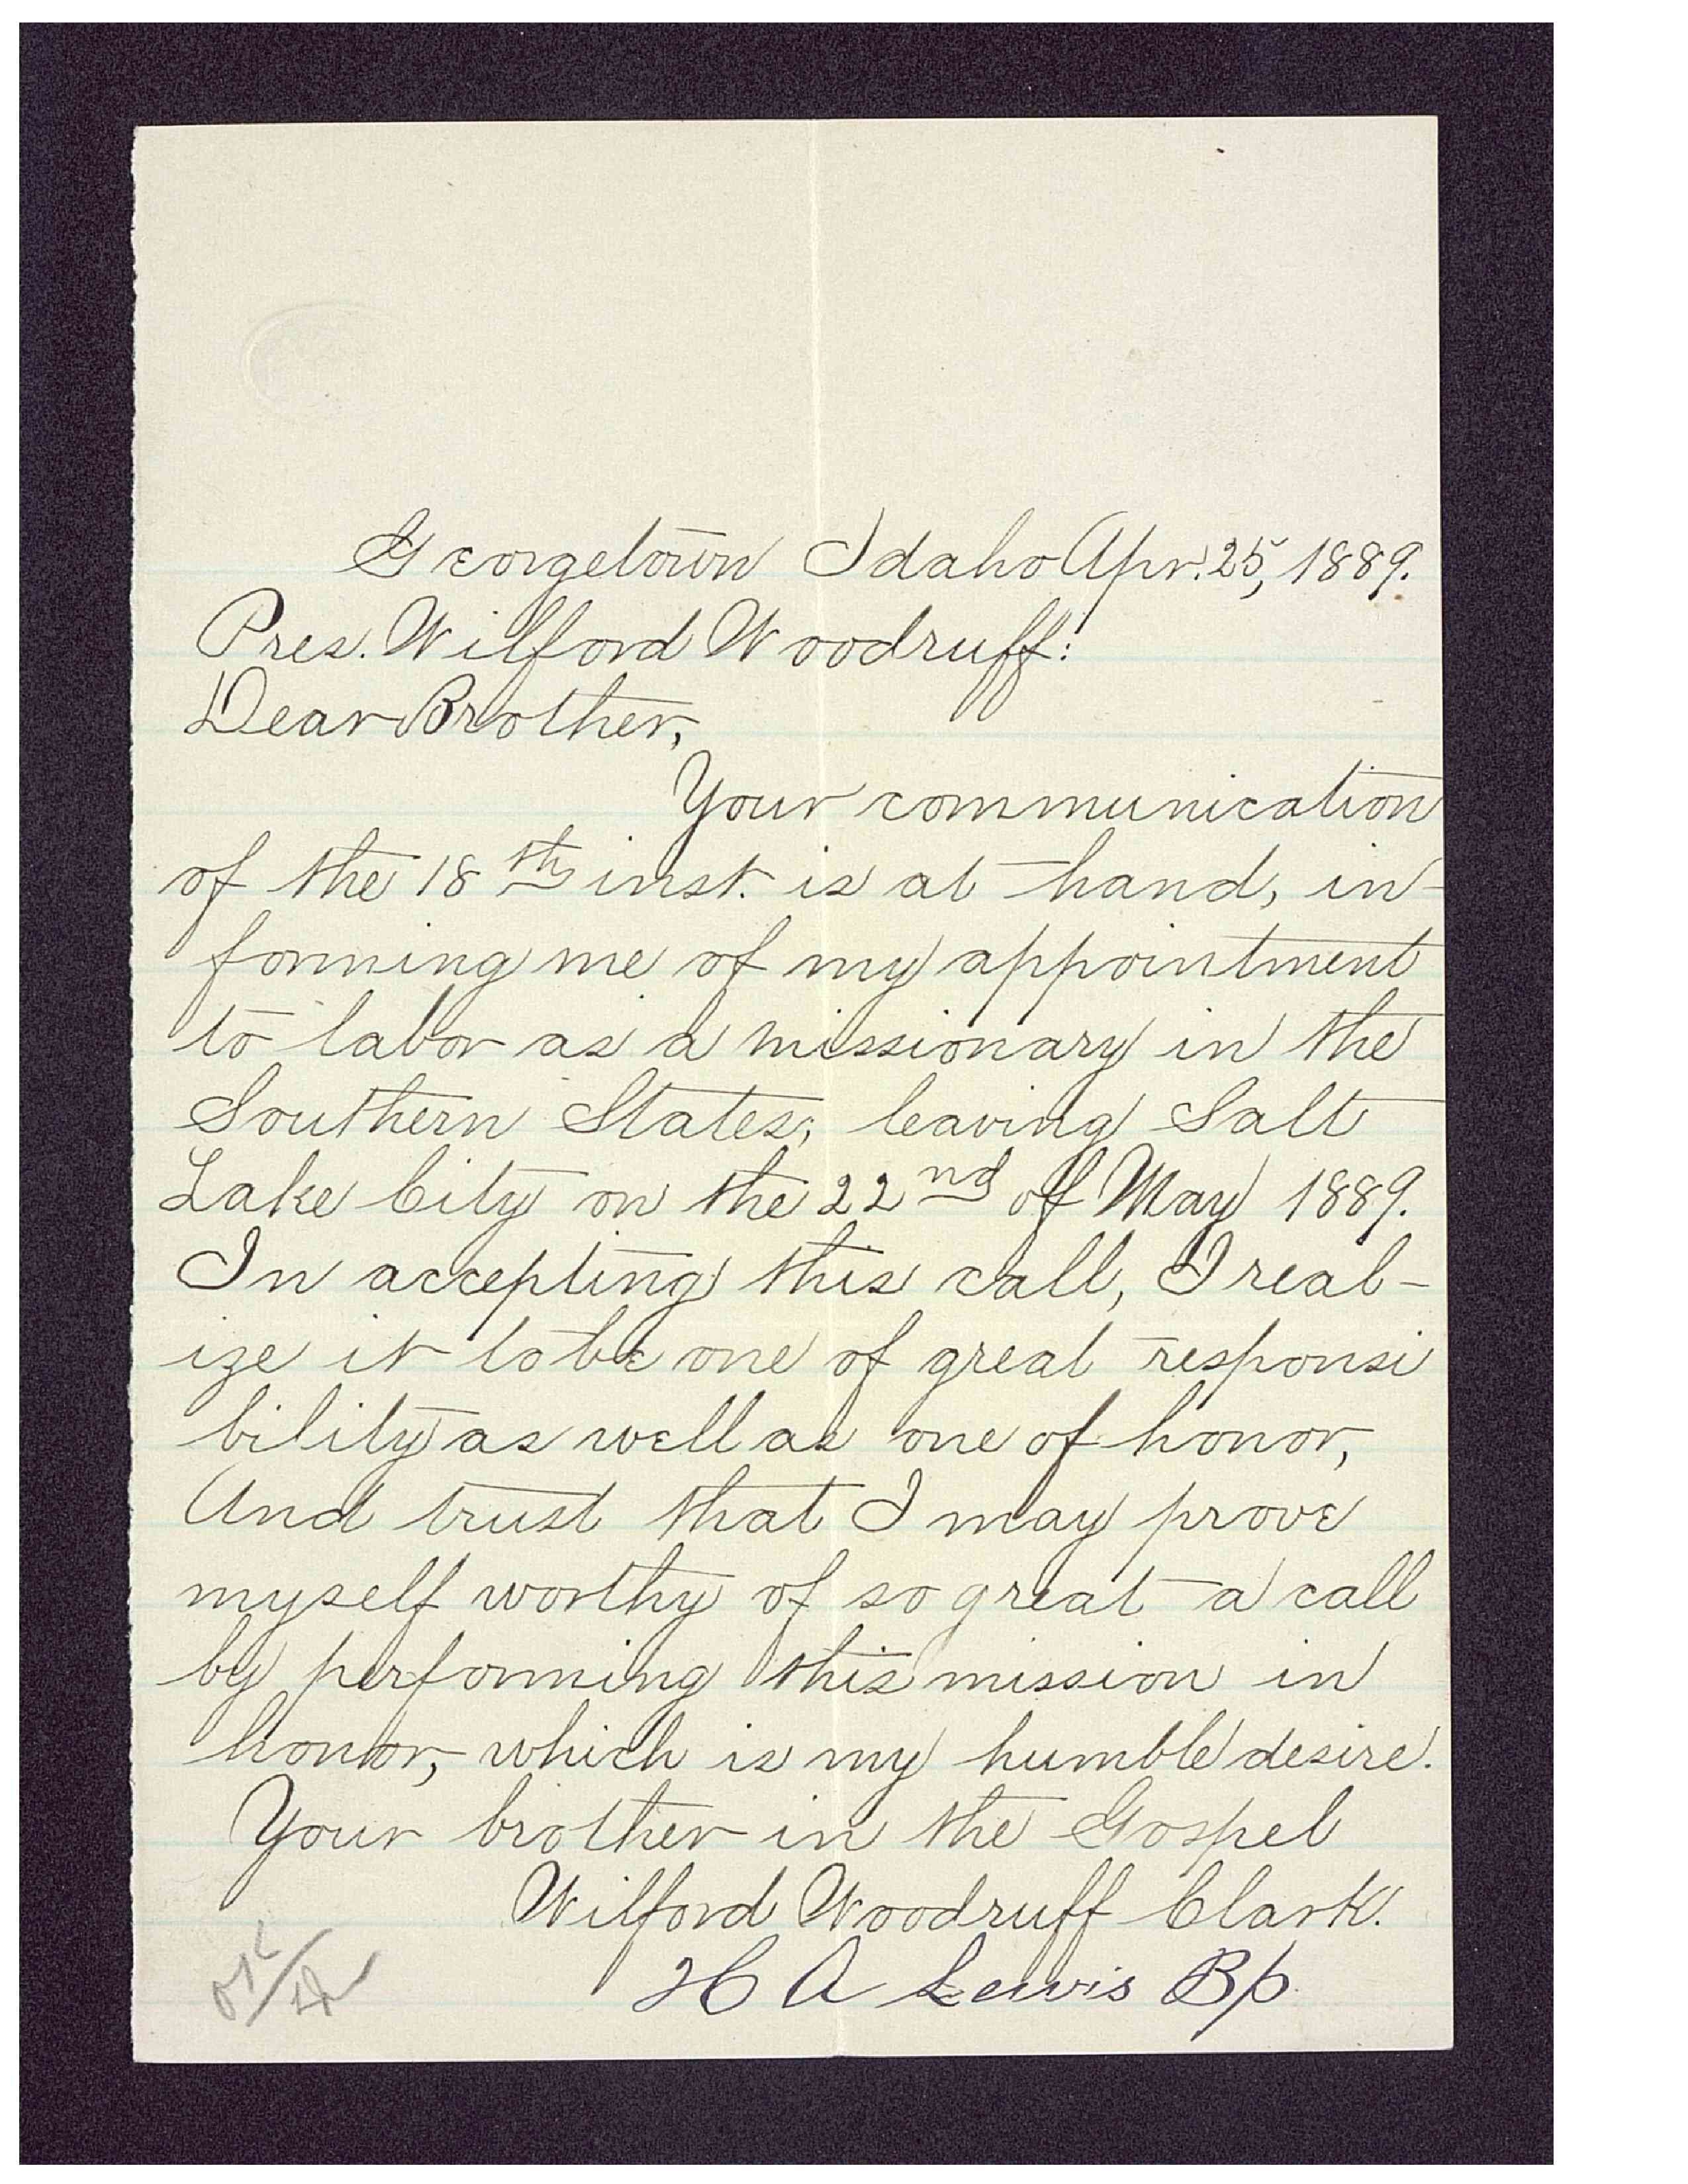 Georgetown Idaho Apr. 25, 1889.
Pres. Wilford Woodruff:
Dear Brother,
Your communication
of the 18th inst. is at hand, in-
forming me of my appointment
to labor as a missionary in the
Southern States, leaving Salt
Lake City on the 22nd of May 1889.
In accepting this call, I real-
ize it to be one of great responsi
bility as well as one of honor,
And trust that I may prove
myself worthy of so great a call
by performing this mission in
honor, which is my humble desire.
Your brother in the Gospel
Wilford Woodruff Clark.
H A Lewis Bp